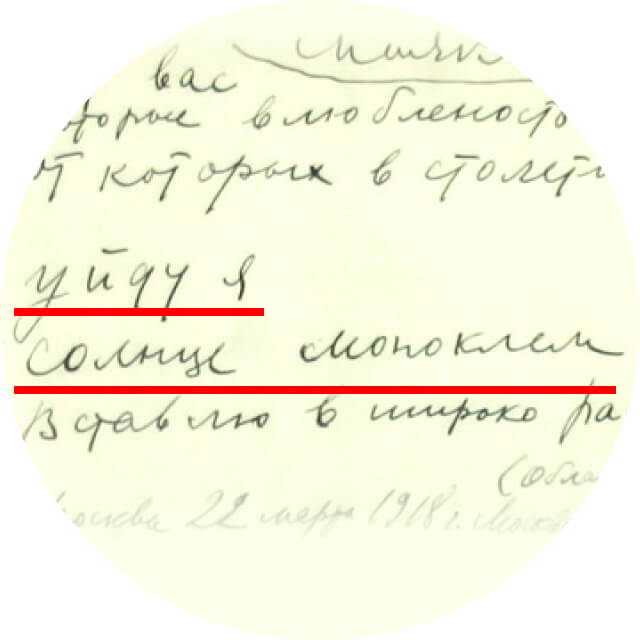 вас
которые влюбленосто
от которых в столети
уйду я
солнце моноклем
Вставлю в широко ра
(Обла
Москва 22 марта 1918 г. Москв